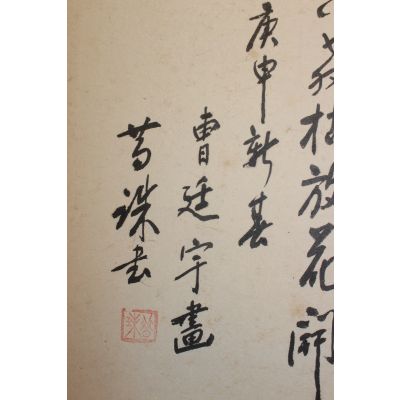 枝放花開
庚申新春
曹廷宇畫
書